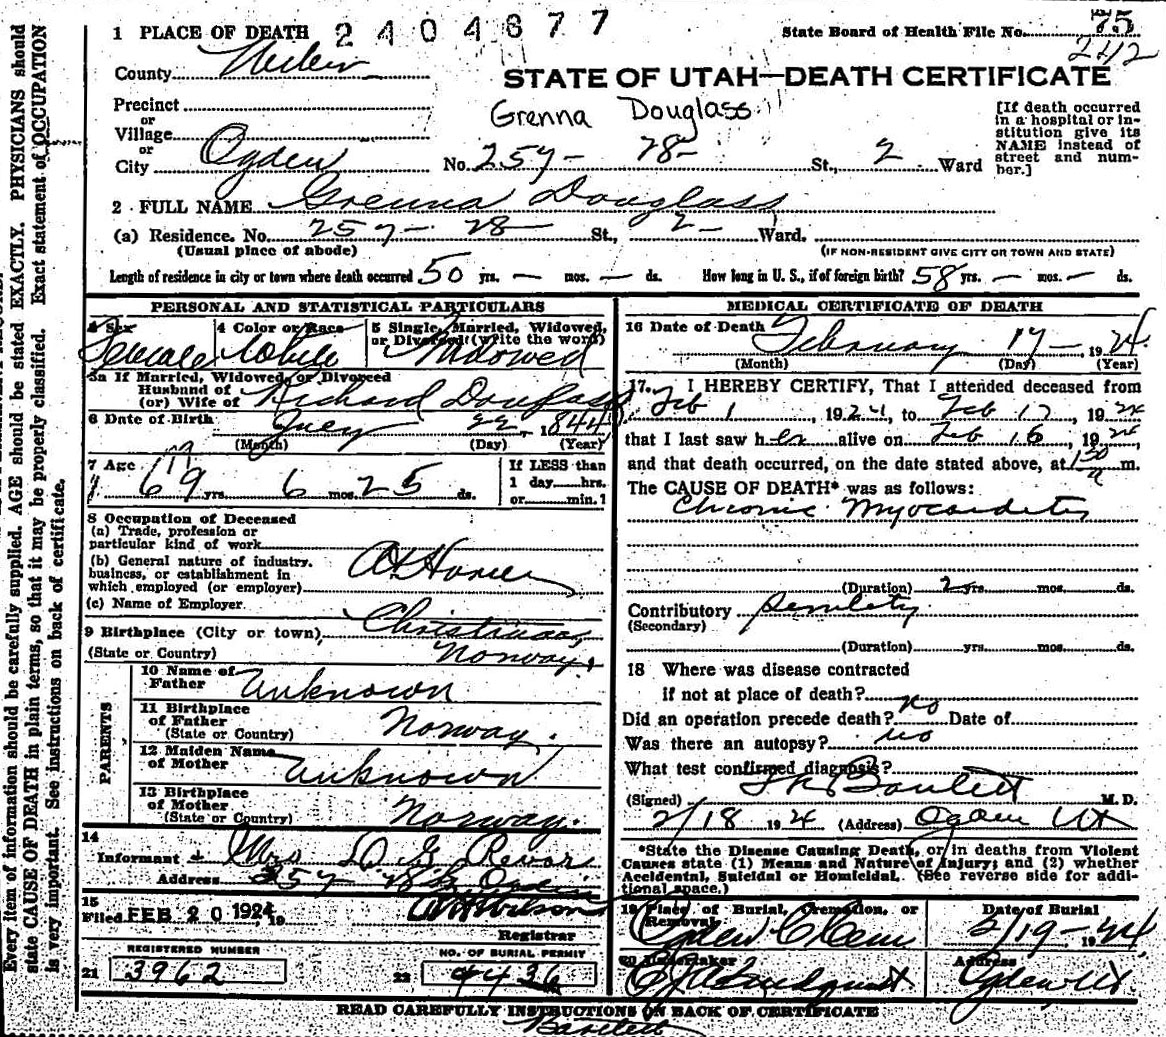 1 PLACE OF DEATH 2404677
State Board of Health File No. 75
242
County Weber
STATE OF UTAH—DEATH CERTIFICATE
Precinct
or
Village
or
City Ogden
Grenna Douglass
No. 257- 28- St., 2 Ward
[If death occurred
in a hospital or in-
stitution give its
NAME instead of
street and num-
ber.]
2 FULL NAME Grenna Douglass
(a) Residence. No. 257- 28- St., 2- Ward.
(Usual place of abode)
(IF NON-RESIDENT GIVE CITY OR TOWN AND STATE)
Length of residence in city or town where death occurred 50 yrs. — mos. — ds.
How long in U. S., if of foreign birth? 58 yrs. — mos. — ds.
PERSONAL AND STATISTICAL PARTICULARS
3 Sex Female
4 Color or Race White
5 Single, Married, Widowed,
or Divorced (write the word)
Widowed
5a If Married, Widowed, or Divorced
Husband of
(or) Wife of Richard Douglass
6 Date of Birth July 22, 1844
(Month) (Day) (Year)
7 Age 69 yrs. 6 mos. 25 ds.
If LESS than
1 day hrs.
or min.?
8 Occupation of Deceased
(a) Trade, profession or
particular kind of work
(b) General nature of industry,
business, or establishment in
which employed (or employer)
At Home
(c) Name of Employer
9 Birthplace (City or town), Christiana,
(State or Country) Norway.
PARENTS
10 Name of
Father Unknown
11 Birthplace
of Father
(State or Country) Norway.
12 Maiden Name
of Mother Unknown
13 Birthplace
of Mother
(State or Country) Norway.
14
Informant Mrs D. G.
Address 257 28 Ogden
15
Filed FEB 20 1924, 19
Wilson
Registrar
REGISTERED NUMBER
21 3962
NO. OF BURIAL PERMIT
22 4436
MEDICAL CERTIFICATE OF DEATH
16 Date of Death February 17- 1924
(Month) (Day) (Year)
17. I HEREBY CERTIFY, That I attended deceased from
Feb 1, 1924, to Feb 17, 1924
that I last saw her alive on Feb 16, 1924,
and that death occurred, on the date stated above, at 1 30 a m.
The CAUSE OF DEATH* was as follows:
Chronic Myocarditis
(Duration) 2 yrs. mos. ds.
Contributory Senility
(Secondary)
(Duration) yrs. mos. ds.
18 Where was disease contracted
if not at place of death?
Did an operation precede death? no Date of
Was there an autopsy? no
What test confirmed diagnosis?
(Signed) Bartlett M. D.
2/18 1924 (Address) Ogden Ut
*State the Disease Causing Death, or in deaths from Violent
Causes state (1) Means and Nature of Injury; and (2) whether
Accidental, Suicidal or Homicidal. (See reverse side for addi-
tional space.)
19 Place of Burial, Cremation, or
Removal Ogden Cem
Date of Burial
2/19- 1924
20 Undertaker
Lindquist
Address
Ogden Ut.
READ CAREFULLY INSTRUCTIONS ON BACK OF CERTIFICATE
Bartlett
Every item of information should be carefully supplied. AGE should be stated EXACTLY. PHYSICIANS should
state CAUSE OF DEATH in plain terms, so that it may be properly classified. Exact statement of OCCUPATION
is very important. See instructions on back of certificate.